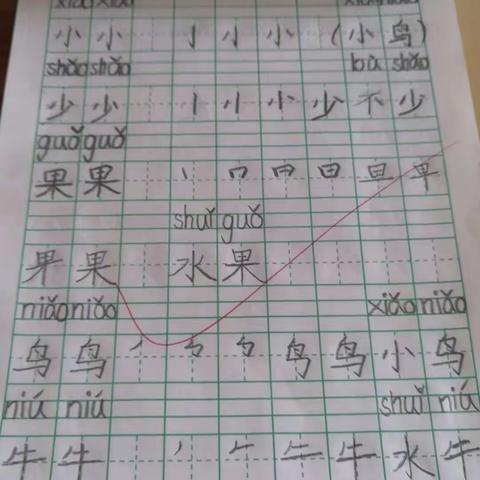 xiǎo xiǎo
小 小 亅 小 小 （小 鸟）
shǎo shǎo bù shǎo
少 少 小 少 不 少
guǒ guǒ
果 果 丶 口 日 旦
shuǐ guǒ
果 果 水 果
niǎo niǎo xiǎo niǎo
鸟 鸟 鸟 鸟 小 鸟
niú niú shuǐ niú
牛 牛 丿 牛 牛 水 牛